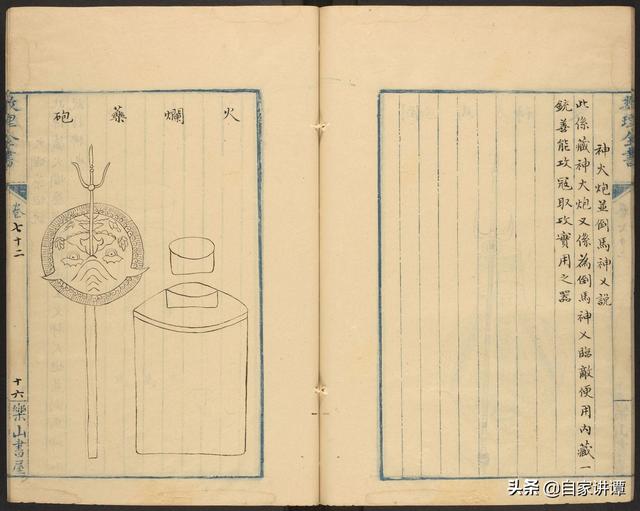 神火炮並倒馬神乂說
此係藏神火炮又像為倒馬神乂臨敵便用內藏一
銃善能攻寇取攻實用之器
火爛藥砲
理全書
卷七十二
十六
樂山書屋
头条 @自家讲谭